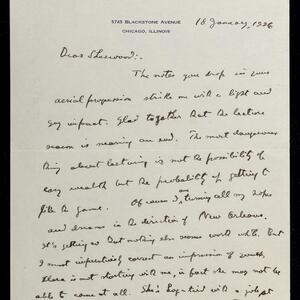 5745 BLACKSTONE AVENUE
CHICAGO, ILLINOIS
18 January, 1926
Dear Sherwood:.
The notes you drop in your
aerial progression strike me with a light and
gay impact. Glad together that the lecture
season is nearing an end. The most dangerous
thing about lecturing is not the possibility of
easy wealth but the probability of getting to
like the game. Of course I am turning all my hopes
and dreams in the direction of New Orleans.
It's getting so that nothing else seems worth while. But
I must imperatively correct an impression of yours,
there is not starting with me, in fact she may not be
able to come at all. She's hog-tied with a job at